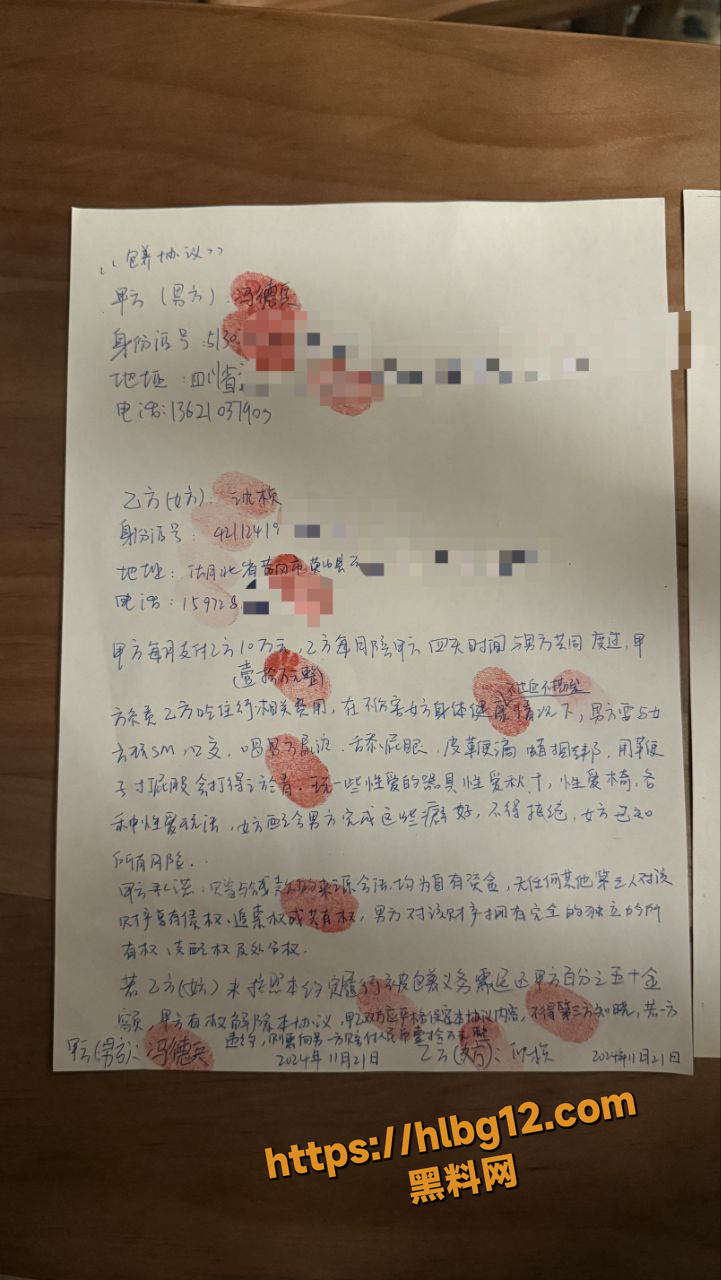 《包养协议》
甲方(男方):
身份证号:
地址:
电话:
乙方(女方):
身份证号:
地址:
电话:
甲方每月支付乙方10万元,乙方每月陪甲方四天时间与男方共同度过,甲
(壹拾万元整)
方负责乙方吃住行相关费用,在不伤害女方身体健康情况下,男方要与女
方玩SM,口交,喝男方尿液,舔屁眼,皮鞭滴蜡捆绑,用鞭
子打屁股会打得,玩一些性爱的器具性爱秋千,性爱椅,各
种性爱玩法,女方配合男方完成这些癖好,不得拒绝,女方已知
所有风险.
甲方承诺:赠与钱款的来源合法,均为自有资金,无任何其他第三人对该
财产享有债权、追索权或共有权,男方对该财产拥有完全的独立的所
有权、支配权及处分权.
若乙方(女方)未按照本约定履行被包养义务需退还甲方百分之五十金
额,甲方有权解除本协议,甲乙双方应严格保密本协议内容,不得第三方知晓,若一方
违约,则需向另一方赔付人民币壹拾万元整
甲方(男方):
2024年11月21日
乙方(女方):
2024年11月21日
黑料网